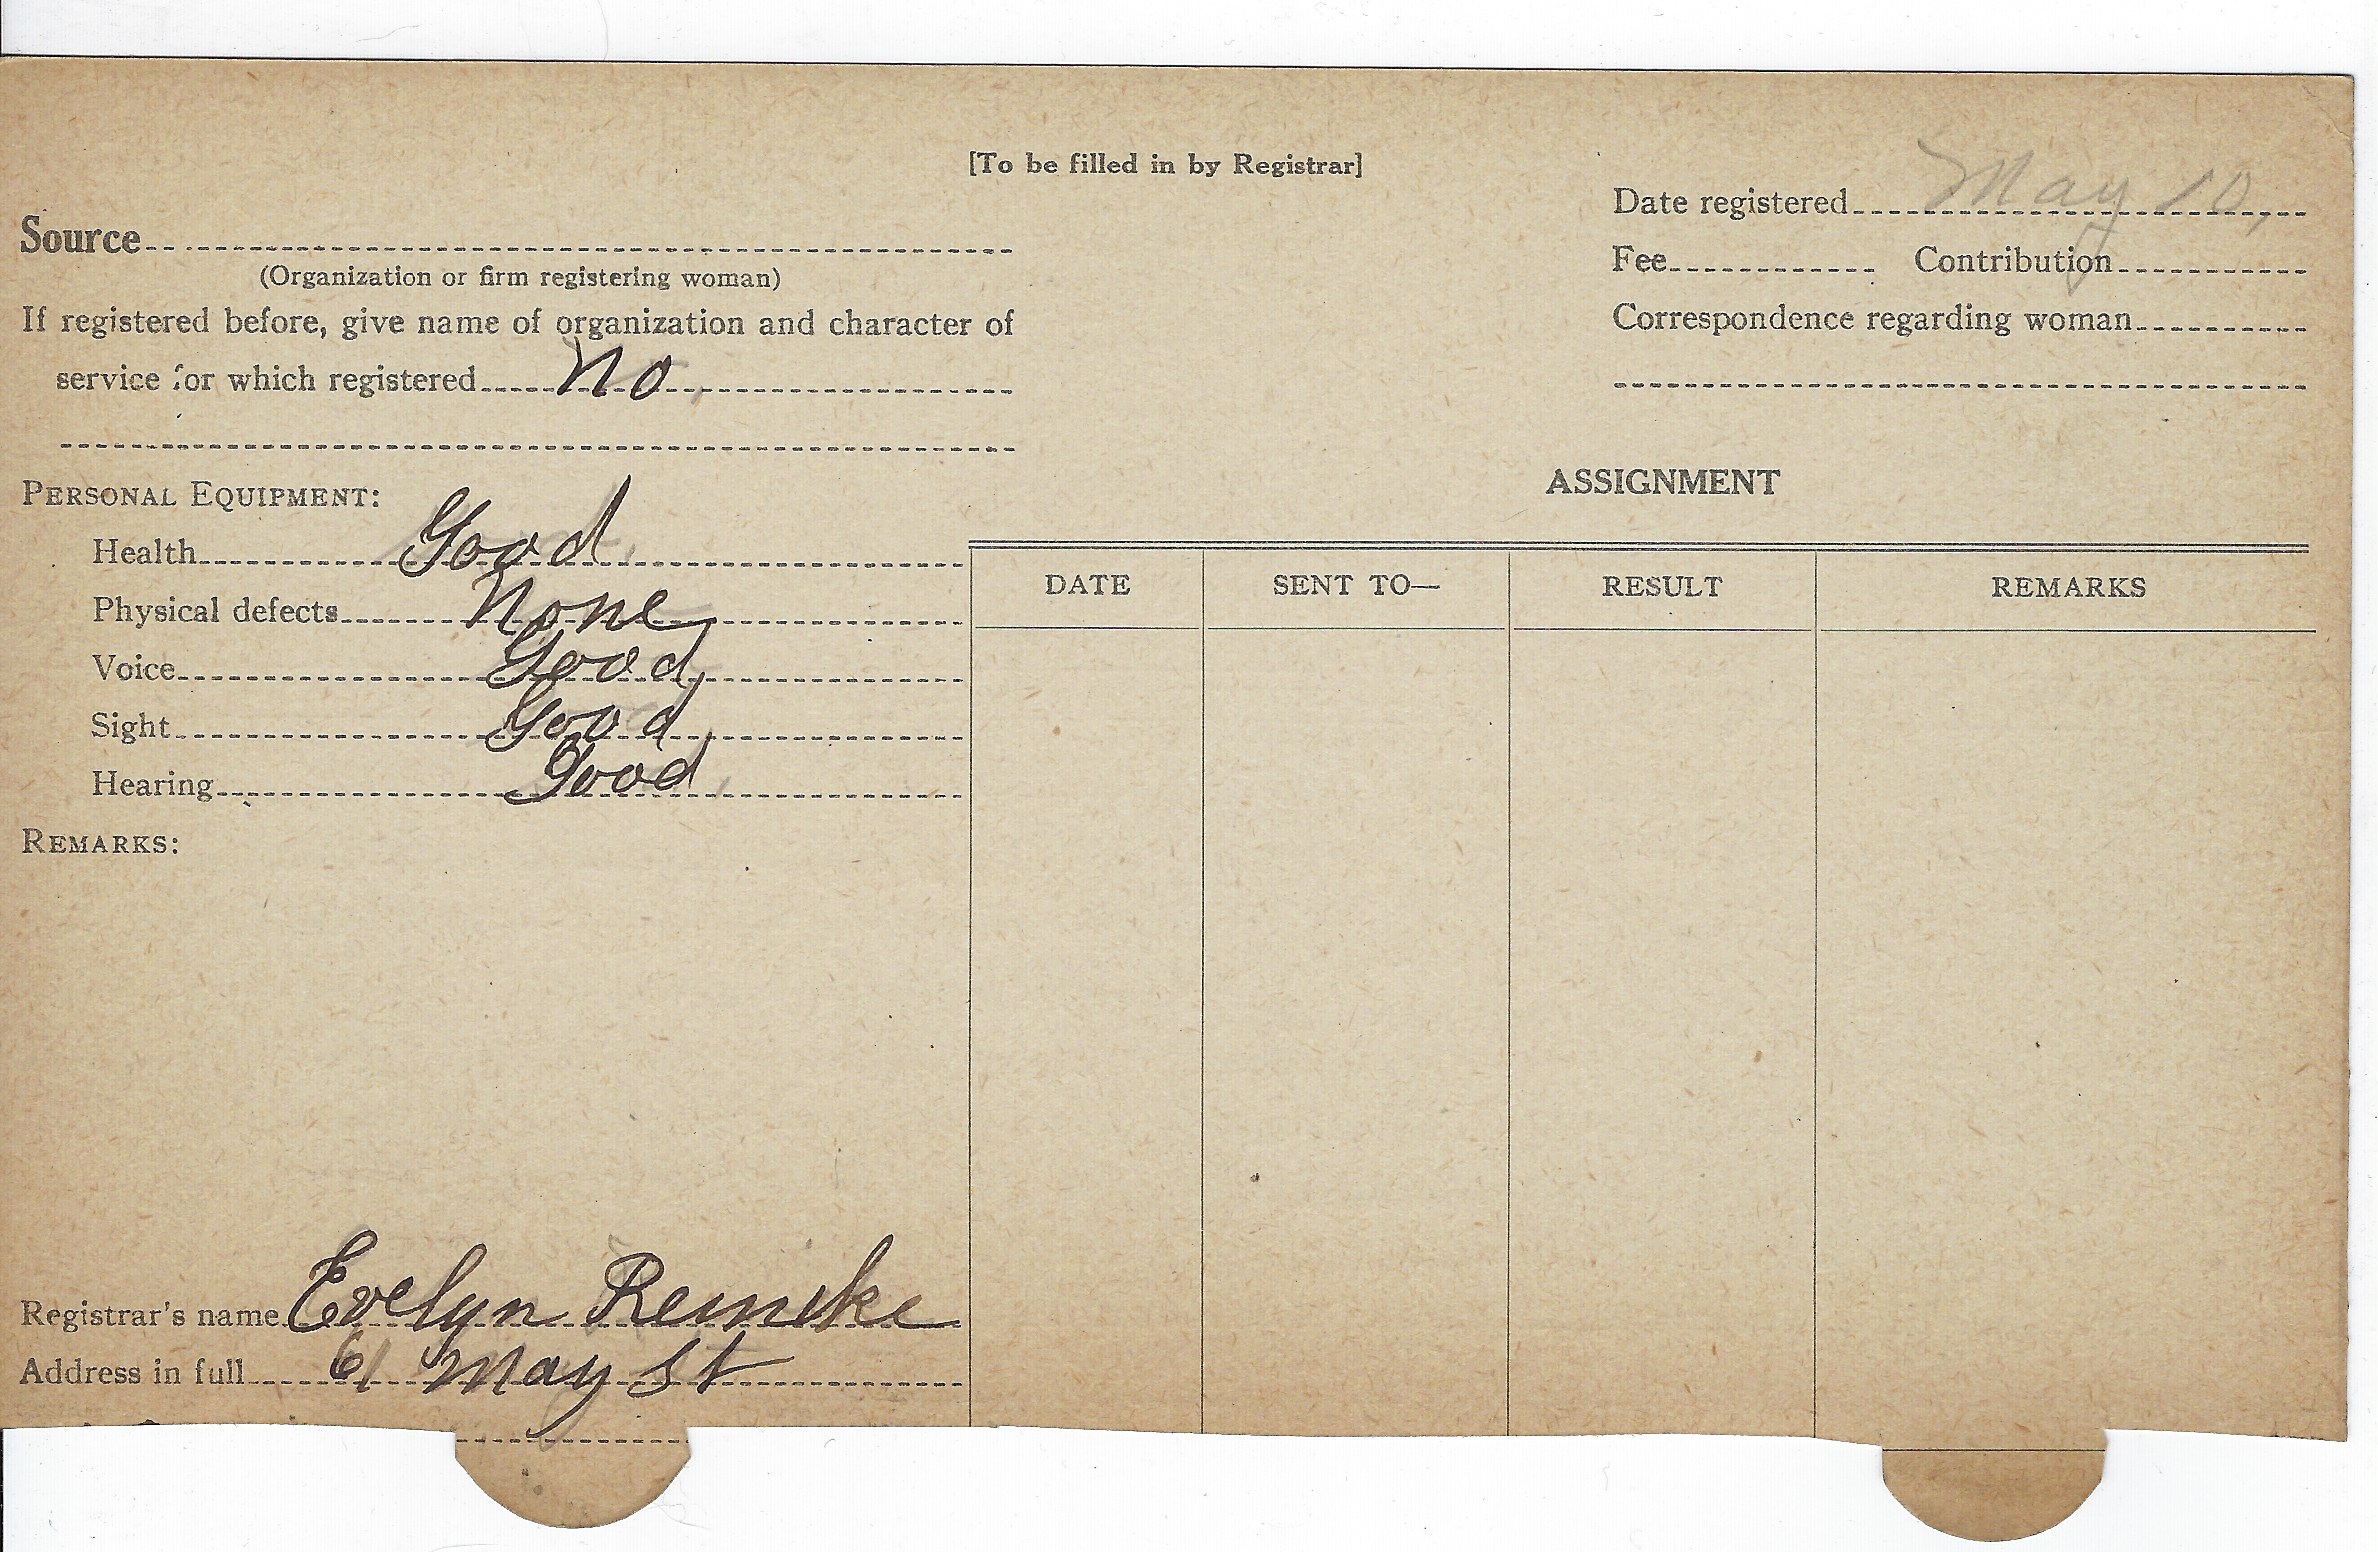 [To be filled in by Registrar]
Date registered May 10,
Source
(Organization or firm registering woman)
Fee Contribution
If registered before, give name of organization and character of
service for which registered No
Correspondence regarding woman
PERSONAL EQUIPMENT:
Health Good
Physical defects None
Voice Good
Sight Good
Hearing Good
REMARKS:
ASSIGNMENT
DATE SENT TO— RESULT REMARKS
Registrar's name Evelyn Reincke
Address in full 61 May St